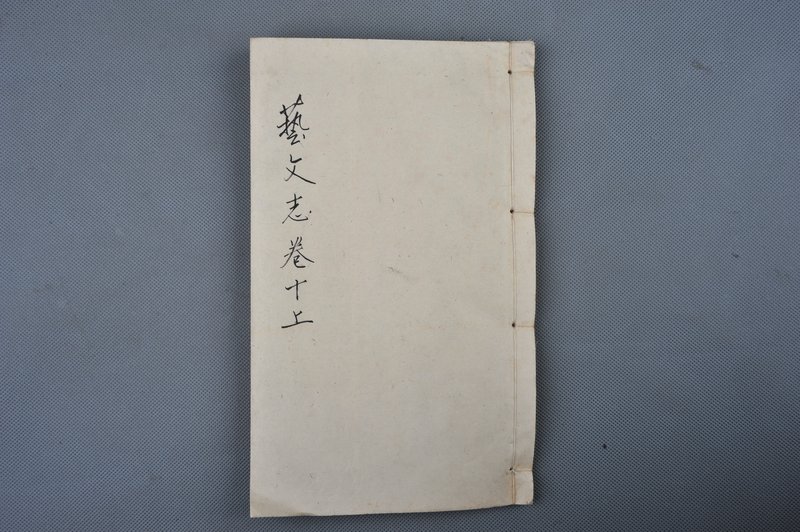 藝文志卷十上